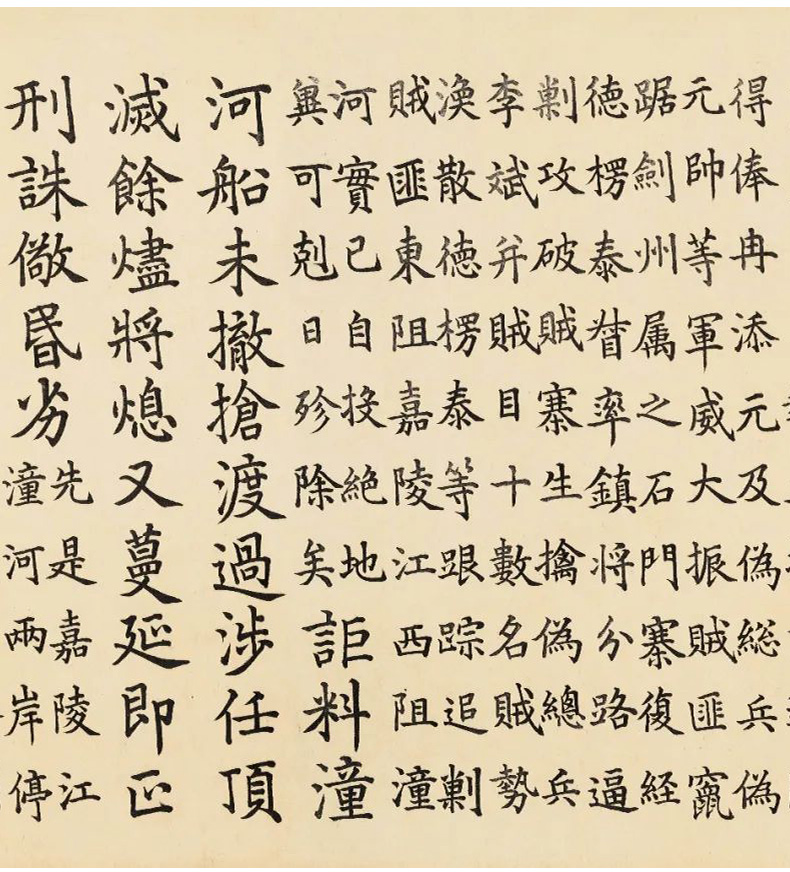 得俸冉添元及偽総兵偽
元帥等軍威大振賊匪竄
踞劍州属之石門寨復経
德楞泰督率鎮將分路逼
剿攻破賊寨生擒偽總兵
李斌并賊目十數名賊勢
渙散德楞泰等跟踪追剿
賊匪東阻嘉陵江西阻潼
河實已自投絕地
冀可剋日殄除矣
詎料潼
河船未撤搶渡過涉任頂
滅餘燼將熄又蔓延即正
刑誅儆昏劣
先是嘉陵江
潼河兩岸停